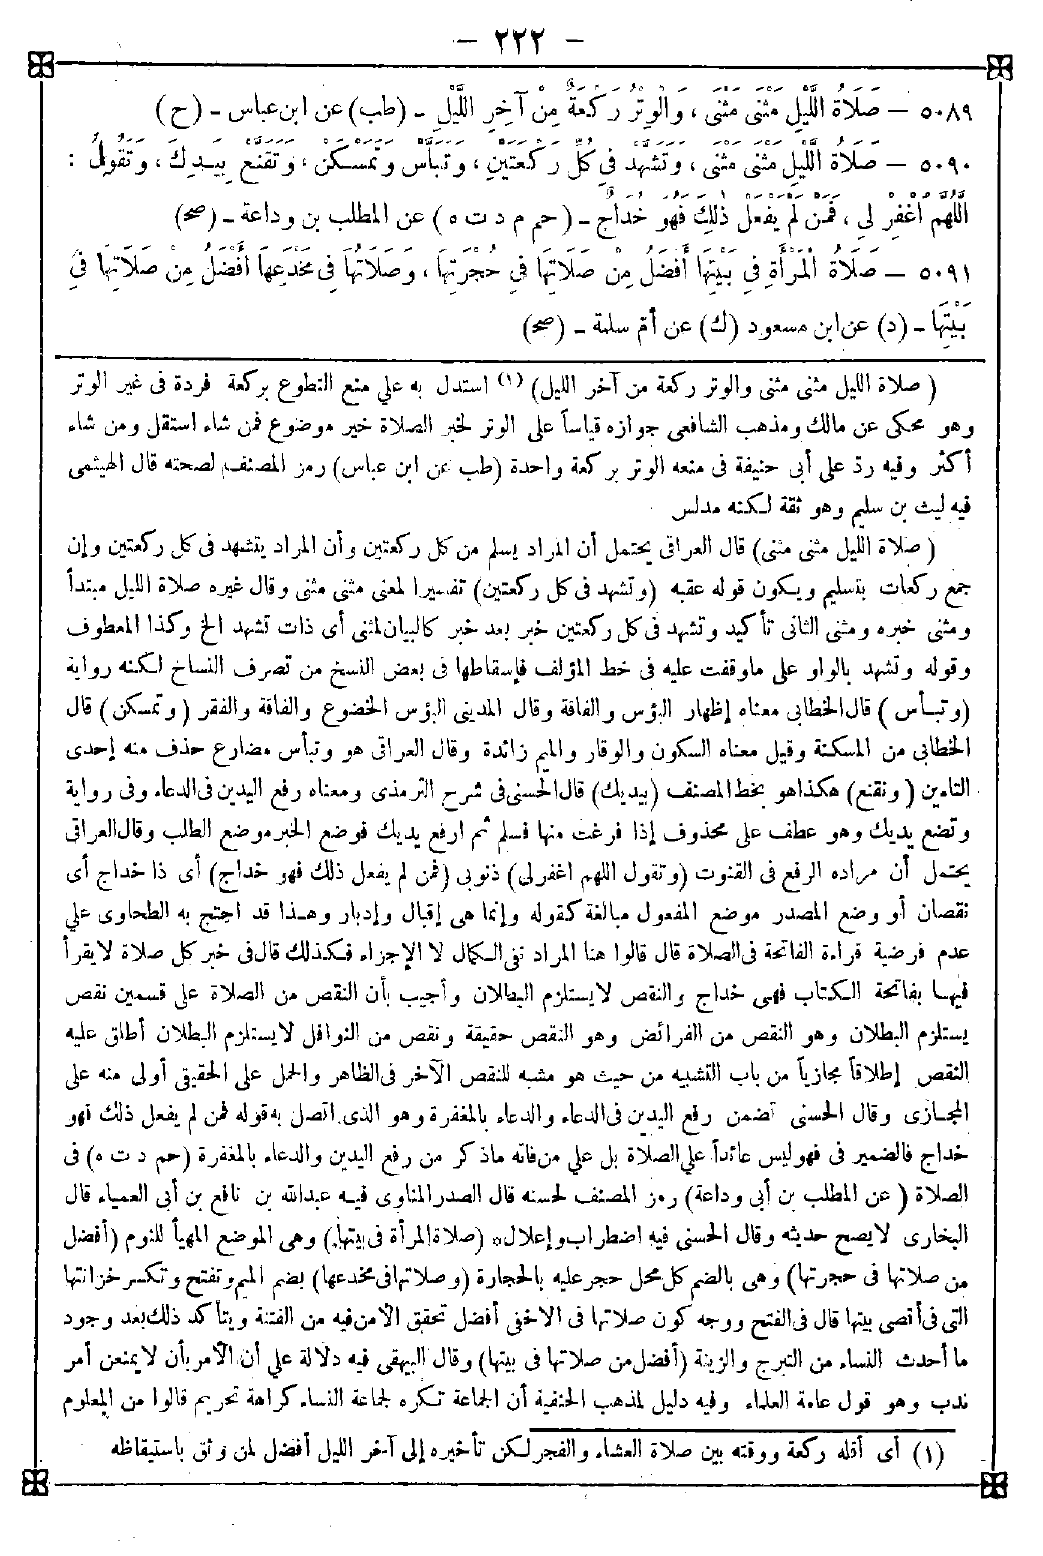 - ٢٢٢ -
٥٠٨٩ - صَلَاةُ اللَّيْلِ مَثْنَى مَثْنَى ، وَالْوِتْرُ رَكْعَةٌ مِنْ آخِرِ اللَّيْلِ - (طب) عن ابن عباس - (ح)
٥٠٩٠ - صَلَاةُ اللَّيْلِ مَثْنَى مَثْنَى ، وَتَشَهَّدُ فِي كُلِّ رَكْعَتَيْنِ ، وَتَبَأَّسُ وَتَمَسْكَنُ ، وَتَقْنَعُ بِيَدِكَ ، وَتَقُولُ :
اللَّهُمَّ اغْفِرْ لِي ، فَمَنْ لَمْ يَفْعَلْ ذَلِكَ فَهُوَ خِدَاجٌ - (حم م د ت ه) عن المطلب بن وداعة - (صح)
٥٠٩١ - صَلَاةُ الْمَرْأَةِ فِي بَيْتِهَا أَفْضَلُ مِنْ صَلَاتِهَا فِي حُجْرَتِهَا ، وَصَلَاتُهَا فِي مَخْدَعِهَا أَفْضَلُ مِنْ صَلَاتِهَا فِي
بَيْتِهَا - (د) عن ابن مسعود (ك) عن أم سلمة - (صح)
( صلاة الليل مثنى مثنى والوتر ركعة من آخر الليل) (١) استدل به على منع التطوع بركعة فردة فى غير الوتر
وهو محكى عن مالك ومذهب الشافعى جوازه قياساً على الوتر لخبر الصلاة خير موضوع فمن شاء استقل ومن شاء
أكثر وفيه ردّ على أبى حنيفة فى منعه الوتر بركعة واحدة (طب عن ابن عباس) رمز المصنف لصحته قال الهيثمى
فيه ليث بن سليم وهو ثقة لكنه مدلس
( صلاة الليل مثنى مثنى) قال العراقى يحتمل أن المراد يسلم من كل ركعتين وأن المراد يتشهد فى كل ركعتين وإن
جمع ركعات بتسليم ويكون قوله عقبه (وتشهد فى كل ركعتين) تفسيرا لمعنى مثنى مثنى وقال غيره صلاة الليل مبتدأ
ومثنى خبره ومثنى الثانى تأكيد وتشهد فى كل ركعتين خبر بعد خبر كالبيان لمثنى أى ذات تشهد الخ وكذا المعطوف
وقوله وتشهد بالواو على ماوقفت عليه فى خط المؤلف فإسقاطها فى بعض النسخ من تصرف النساخ لكنه رواية
(وتبأس ) قال الخطابى معناه إظهار البؤس والفاقة وقال المدينى البؤس الخضوع والفاقة والفقر (وتمسكن) قال
الخطابى من المسكنة وقيل معناه السكون والوقار والميم زائدة وقال العراقى هو وتبأس مضارع حذف منه إحدى
التاءين (وتقنع) هكذاهو بخط المصنف (بيديك) قال الحسنى فى شرح الترمذى ومعناه رفع اليدين فى الدعاء وفى رواية
وتضع يديك وهو عطف على محذوف إذا فرغت منها فسلم ثم ارفع يديك فوضع الخبر موضع الطلب وقال العراقى
يحتمل أن مراده الرفع فى القنوت (وتقول اللهم اغفرلى) ذنوبى (فمن لم يفعل ذلك فهو خداج) أى ذا خداج أى
نقصان أو وضع المصدر موضع المفعول مبالغة كقوله وإنما هى إقبال وإدبار وهذا قد احتج به الطحاوى على
عدم فرضية قراءة الفاتحة فى الصلاة قال قالوا هنا المراد نفى الكمال لا الإجزاء فكذلك قال فى خبر كل صلاة لا يقرأ
فيها بفاتحة الكتاب فهى خداج والنقص لايستلزم البطلان وأجيب بأن النقص من الصلاة على قسمين نقص
يستلزم البطلان وهو النقص من الفرائض وهو النقص حقيقة ونقص من النوافل لايستلزم البطلان أطلق عليه
النقص إطلاقاً مجازياً من باب التشبيه من حيث هو مشبه للنقص الآخر فى الظاهر والحمل على الحقيقى أولى منه على
المجازى وقال الحسنى تضمن رفع اليدين فى الدعاء والدعاء بالمغفرة وهو الذى اتصل به قوله فمن لم يفعل ذلك فهو
خداج فالضمير فى فهو ليس عائداً على الصلاة بل على من فاته ماذكر من رفع اليدين والدعاء بالمغفرة (حم د ت ه) فى
الصلاة ( عن المطلب بن أبى وداعة) رمز المصنف لحسنه قال الصدر المناوى فيه عبدالله بن نافع بن أبى العمياء قال
البخارى لايصح حديثه وقال الحسنى فيه اضطراب وإعلال* (صلاة المرأة فى بيتها) وهى الموضع المهيأ للنوم (أفضل
من صلاتها فى حجرتها) وهى بالضم كل محل حجر عليه بالحجارة (وصلاتها فى مخدعها) بضم الميم وتفتح وتكسر خزانتها
التى فى أقصى بيتها قال فى الفتح ووجه كون صلاتها فى الاخفى أفضل تحقق الأمن فيه من الفتنة ويتأكد ذلك بعد وجود
ما أحدث النساء من التبرج والزينة (أفضل من صلاتها فى بيتها) وقال البيهقى فيه دلالة على أن الأمر بأن لا يمنعن أمر
ندب وهو قول عامة العلماء وفيه دليل لمذهب الحنفية أن الجماعة تكره لجماعة النساء كراهة تحريم قالوا من المعلوم
(١) أى أقله ركعة ووقته بين صلاة العشاء والفجر لكن تأخيره إلى آخر الليل أفضل لمن وثق باستيقاظه